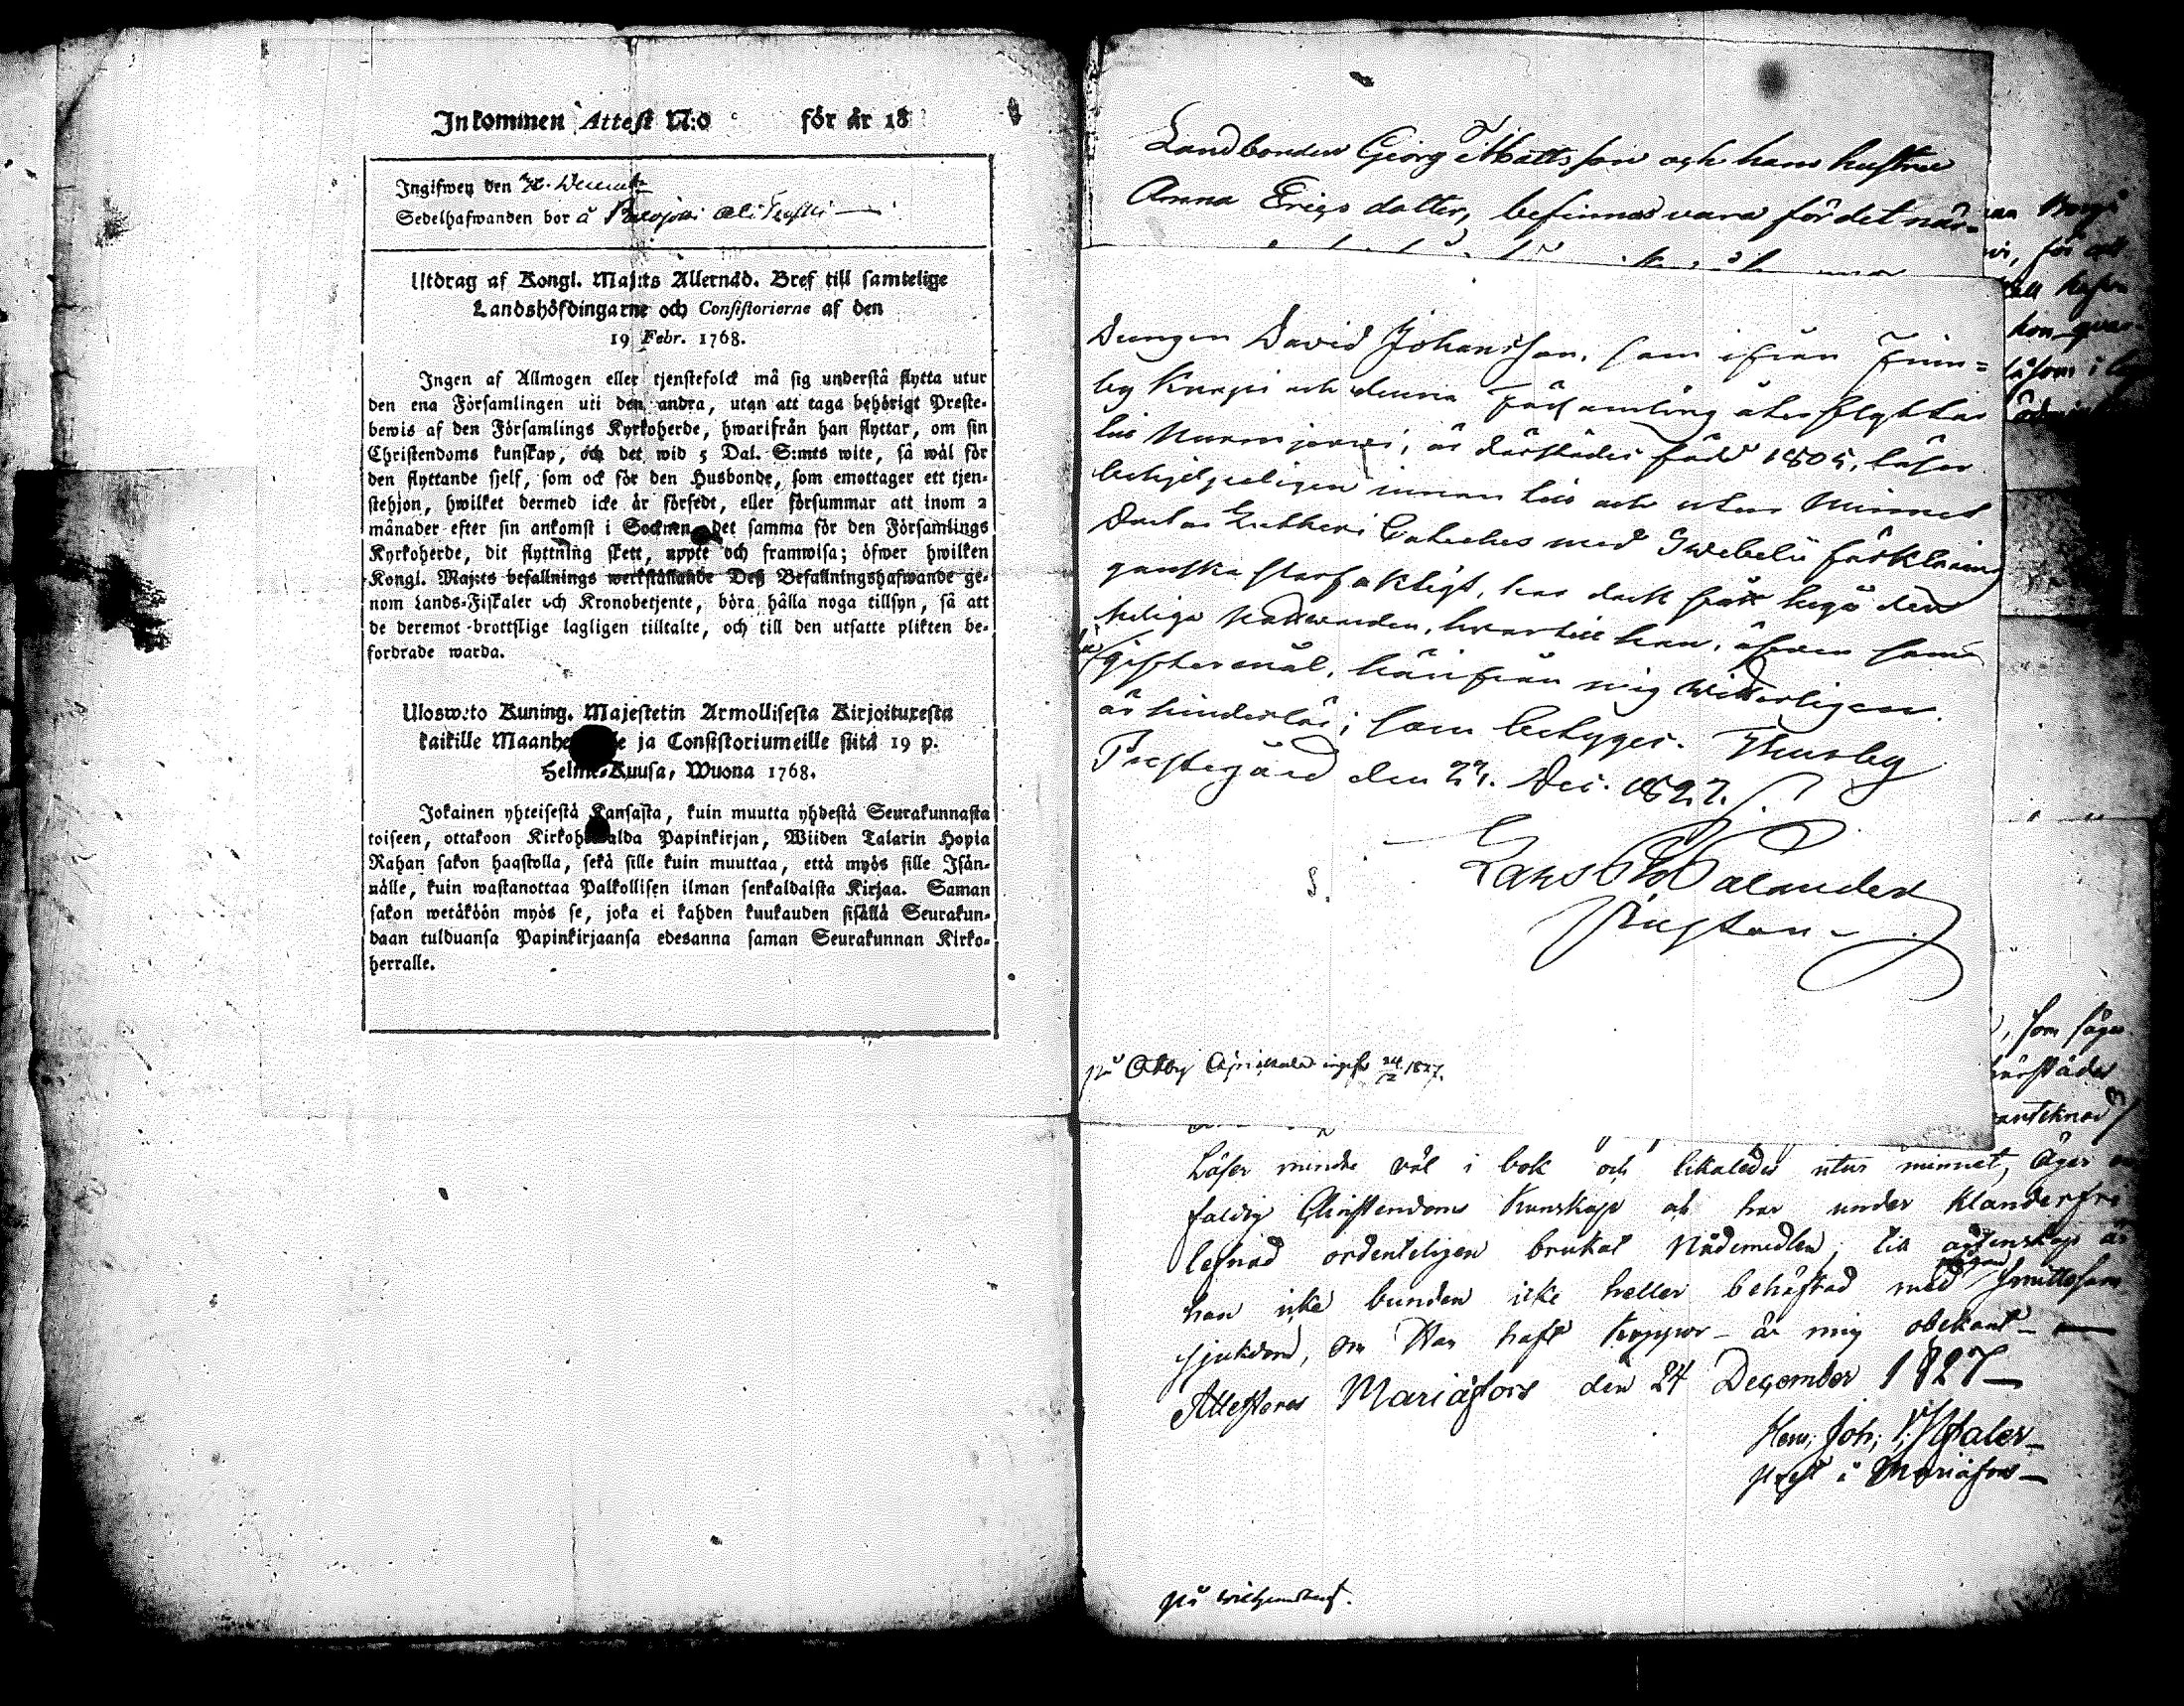 Inkommen Attest N:o för år 18
Ingifwen den Decemb.
Sedelhafwanden bor å
Utdrag af Kongl. Maj:ts Allernåd. Bref till samtelige
Landshöfdingarne och Consistorierne af den
19 Febr. 1768.
Ingen af Allmogen eller tjenstefolck må sig understå flytta utur
den ena Församlingen uti den andra, utan att taga behörigt Preste-
bewis af den Församlings Kyrkoherde, hwarifrån han flyttar, om sin
Christendoms kunskap, och det wid 5 Dal. S:mts wite, så wål för
den flyttande sjelf, som ock för den Husbonde, som emottager ett tjen-
stehjon, hwilket dermed icke är försedt, eller försummar att inom 2
månader efter sin ankomst i Socknen det samma för den Församlings
Kyrkoherde, dit flyttning skett, uppte och framwisa; öfwer hwilken
Kongl. Maj:ts befallnings werkställande Deß Befallningshafwande ge-
nom Lands-Fiskaler och Kronobetjente, böra hålla noga tillsyn, så att
de deremot brottslige lagligen tilltalte, och till den utsatte plikten be-
fordrade warda.
Ulosw:to Kuning. Majestetin Armollisesta Kirjoituxesta
kaikille ja Consistoriumeille siitä 19 p.
Helme-Kuusa, Wuona 1768.
Jokainen yhteisestä Kansasta, kuin muutta yhdestä Seurakunnasta
toiseen, ottakoon Papinkirjan, Wiiden Talarin Hopia
Rahan sakon haastolla, sekä sille kuin muuttaa, että myös sille Isän-
nälle, kuin wastanottaa Palkollisen ilman senkaldaista Kirjaa. Saman
sakon wetäköön myös se, joka ei kahden kuukauden sisällä Seurakun-
daan tulduansa Papinkirjaansa edesanna saman Seurakunnan Kirko-
herralle.
Landbonden Georg Mattsson och hans hustru
Anna Erics dotter, befinnas vara för det när-
Drengen David Johansson, som ifrån Finn-
by Knapi och denna Församling återflyttar
till Nurmijerwi, är därstädes född 1805, läser
behjelpeligen innan till och utur Minnet
Doctor Lutheri Cateches med Swebelii förklaring
ganska svarfaktigt, har dock fått begå den
heliga Nattwarden, hvartill han, äfwen som
till giftermål, härifrån mig Witterligen
är hinderlös; som betyger. Thusby
Prestegård den 21. Dec. 1827.
Palander
Pastor
på Åby ingifv. 24/12 1827.
Läser mindre väl i bok och likaledes utur minnet, äger en
faldig Christendoms Kunskap och har under Klanderfri
lefnad ordenteligen brukat Nådemedlen; till ägtenskap är
han icke bunden icke heller behäftad med någon smittosam
sjukdom, om Han haft koppor – är mig obekant –
Attesteras Mariæfors den 24 December 1827 –
Henr. Joh.
Prest i Mariæfors –
på
, som säger
härstädes
anteknad